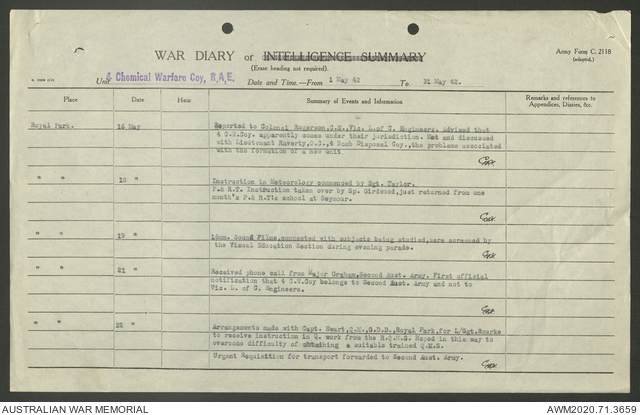 Army Form C. 2118
(adapted.)
WAR DIARY or INTELLIGENCE SUMMARY
(Erase heading not required).
Unit 4 Chemical Warfare Coy, R.A.E. Date and Time.—From 1 May 42 To 31 May 42.
Place Date Hour Summary of Events and Information Remarks and references to
Appendices, Diaries, &c.
Royal Park. 16 May Reported to Colonel Rogerson,C.E.,Vic. L.of C. Engineers. Advised that
4 C.W.Coy. apparently comes under their jurisdiction. Met and discussed
with Lieutenant Raverty,O.C.,4 Bomb Disposal Coy.,the problems associated
with the formation of a new unit
" " 18 " Instruction in Meteorology commenced by Sgt. Taylor.
P.& R.T. Instruction taken over by Sp. Girdwood, just returned from one
month's P.& R.T's school at Seymour.
" " 19 " 16mm. Sound Films,connected with subjects being studied,were screened by
the Visual Education Section during evening parade.
" " 21 " Received phone call from Major Graham,Second Aust. Army. First official
notification that 4 C.W.Coy belongs to Second Aust. Army and not to
Vic. L. of C. Engineers.
" " 22 " Arrangements made with Capt. Ewart,Q.M.,G.D.D.,Royal Park,for L/Sgt.Rourke
to receive instruction in Q. work from the R.Q.M.S. Hoped in this way to
overcome difficulty of obtaining a suitable trained Q.M.S.
Urgent Requisition for transport forwarded to Second Aust. Army.
AUSTRALIAN WAR MEMORIAL AWM2020.71.3659